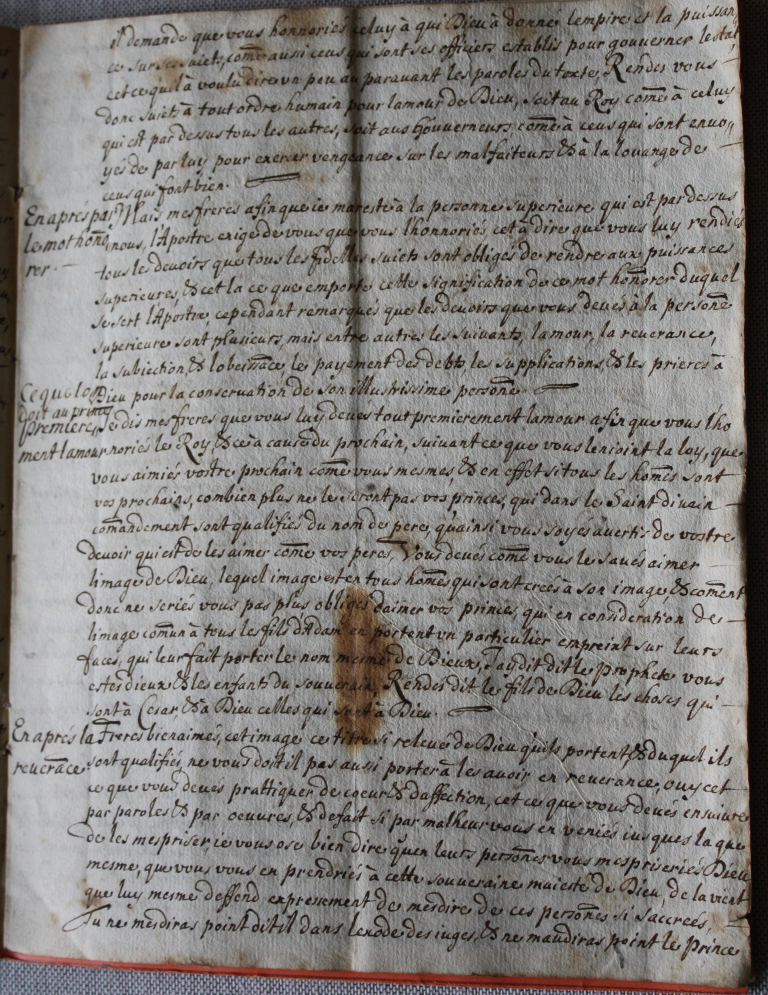 il demande que vous honnoriés celuy à qui Dieu à donné lempire et la puissan
ce sur ses suiets, come aussi ceus qui sont ses officiers establis pour gouverner lestat
cet ce quil à voulu dire un peu au paravant les paroles du texte, Rendes vous
donc suiets à tout ordre humain pour lamour de Dieu, soit au Roy come à celuy
qui est par dessus tous les autres, soit aus Gouverneurs come à ceus qui sont envo
yés de par luy pour exercer vengeance sur les malfaiteurs & à la louange de
ceus qui font bien.
En aprés par
le mot honõ
rer
Mais mes freres afin que ie mareste à la personne superieure qui est par dessus
nous, lApostre exige de vous que vous lhonnoriés cet à dire que vous luy rendiés
tous les devoirs que tous les fidelles suiets sont obligés de rendre aux puissances
superieures, & cet la ce que emporte cette signification de ce mot honõrer duquel
se sert lApostre cependant remarqués que les devoirs que vous devés à la persone
superieure sont plusieurs, mais entre autres les suivants, lamour, la reverance,
la subiection, & lobeissãce, le payement des debts les supplications, & les prieres à
Dieu pour la conservation de son illustrissime persone.
Ce que lon
doit au prince
premiere
ment lamour
Je dis mes freres que vous luy devés tout premierement lamour afin que vous lho
noriés le Roy, & ce à cause du prochain, suivant ce que vous lenioint la loy, que
vous aimiés vostre prochain come vous mesmes, & en effet si tous les homes sont
vos prochains, combien plus ne le seront pas vos princes, qui dans le Saint divain
comandement sont qualifiés du nom de pere, quainsi vous soyés avertis de vostre
devoir qui est de les aimer come vos peres. Vous devés come vous le savés aimer
limage de Dieu, lequel image est en tous homes qui sont creés à son image, & coment
donc ne seriés vous pas plus obligés daimer vos princes qui en consideration de
limage comun à tous les fils dAdam en portent un particulier empreint sur leurs
faces, qui leur fait porter le nom mesme de Dieux, Jay dit dit le Prophete vous
estes dieux & les enfants du souverain, Rendes dit le fils de Dieu les choses qui
sont à Cesar, & à Dieu celles qui sont à Dieu.
En aprés la
reverãce
Freres bienaimés, cet image ce titre si relevé de Dieu quils portent, & duquel ils
sont qualifiés, ne vous doit il pas aussi porter à les avoir en reverance, ouy cet
ce que vous devés prattiquer de coeur & daffection, cet ce que vous devés ensuivre
par paroles & par oeuvres, & de fait si par malheur vous en veniés iusques la que
de les mespriser ie vous ose bien dire quen leurs persones vous mespriseriés Dieu
mesme, que vous vous en prendriés à cette souveraine maiesté de Dieu, de la vient
que luy mesme deffend expressement de mesdire de ces persones si saccreés,
Tu ne mesdiras point dit il dans lexode des iuges, & ne maudiras point le Prince